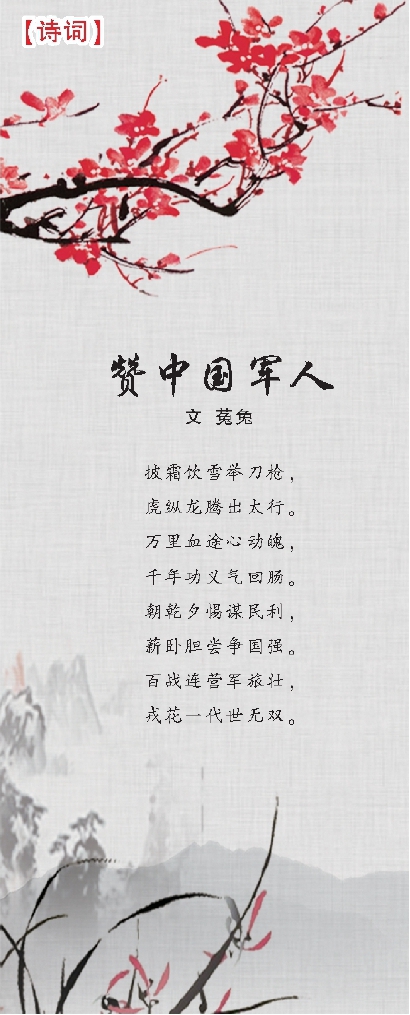 【诗词】
赞中国军人
文 菟兔
披霜饮雪举刀枪，
虎纵龙腾出太行。
万里血途心动魄，
千年功义气回肠。
朝乾夕惕谋民利，
薪卧胆尝争国强。
百战连营军旅壮，
戎花一代世无双。